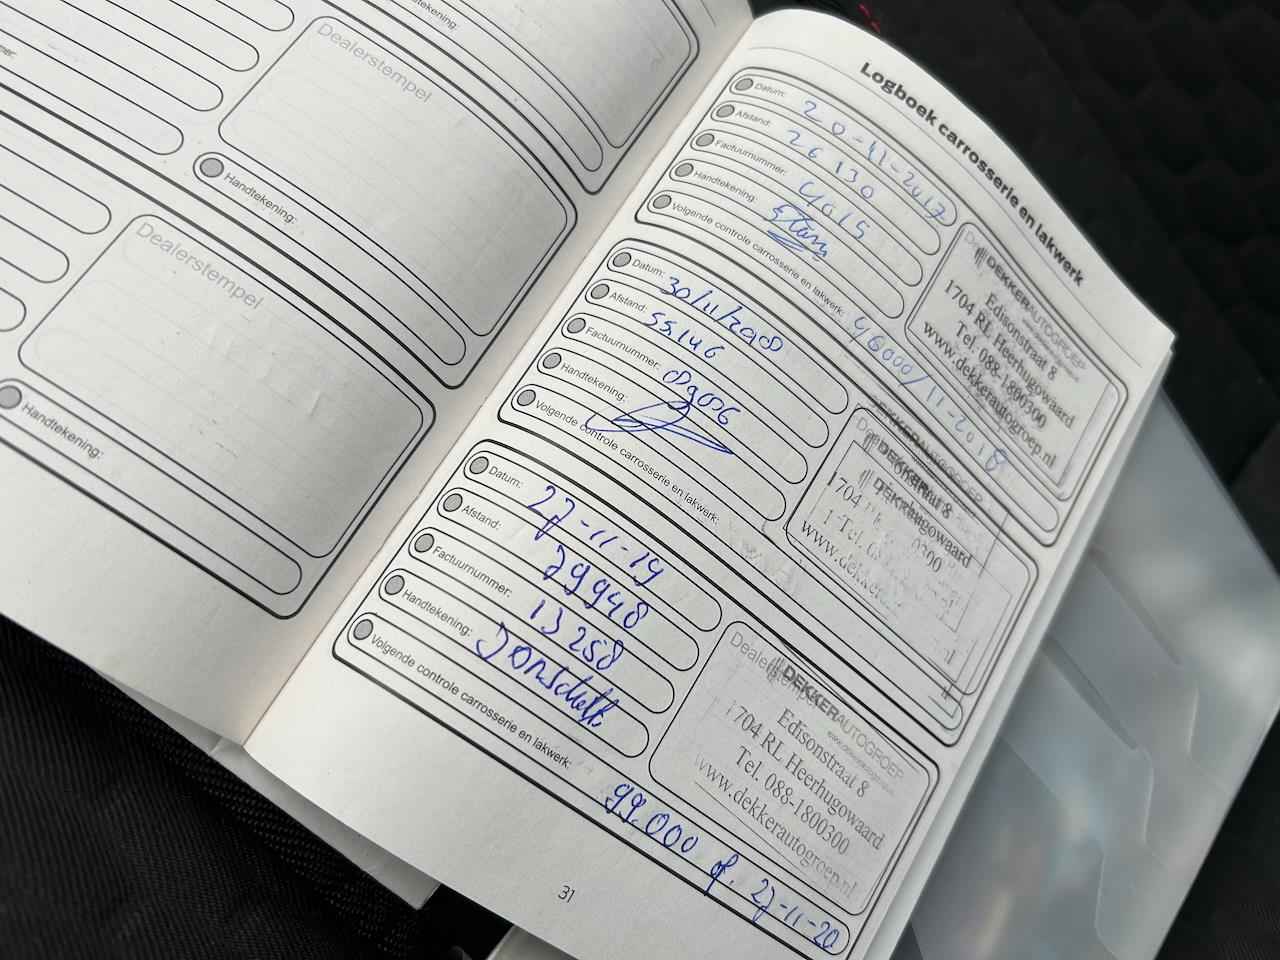 tekening:
Dealerstempel
Handtekening:
Dealerstempel
Handtekening:
Logboek carrosserie en lakwerk
Datum: 20-12-2017
Afstand: 26130
Factuurnummer: 4015
Handtekening:
Volgende controle carrosserie en lakwerk: 46000/11-2018
DEKKERAUTOGROEP
Edisonstraat 8
1704 RL Heerhugowaard
Tel. 088-1800300
www.dekkerautogroep.nl
Datum: 30/11/2018
Afstand: 55.146
Factuurnummer: 09056
Handtekening:
Volgende controle carrosserie en lakwerk:
DEKKERAUTOGROEP
Datum: 27-11-19
Afstand: 79948
Factuurnummer: 13258
Handtekening:
Volgende controle carrosserie en lakwerk: 99.000 of. 27-11-20
Dealerstempel
DEKKERAUTOGROEP
Edisonstraat 8
1704 RL Heerhugowaard
Tel. 088-1800300
www.dekkerautogroep.nl
31